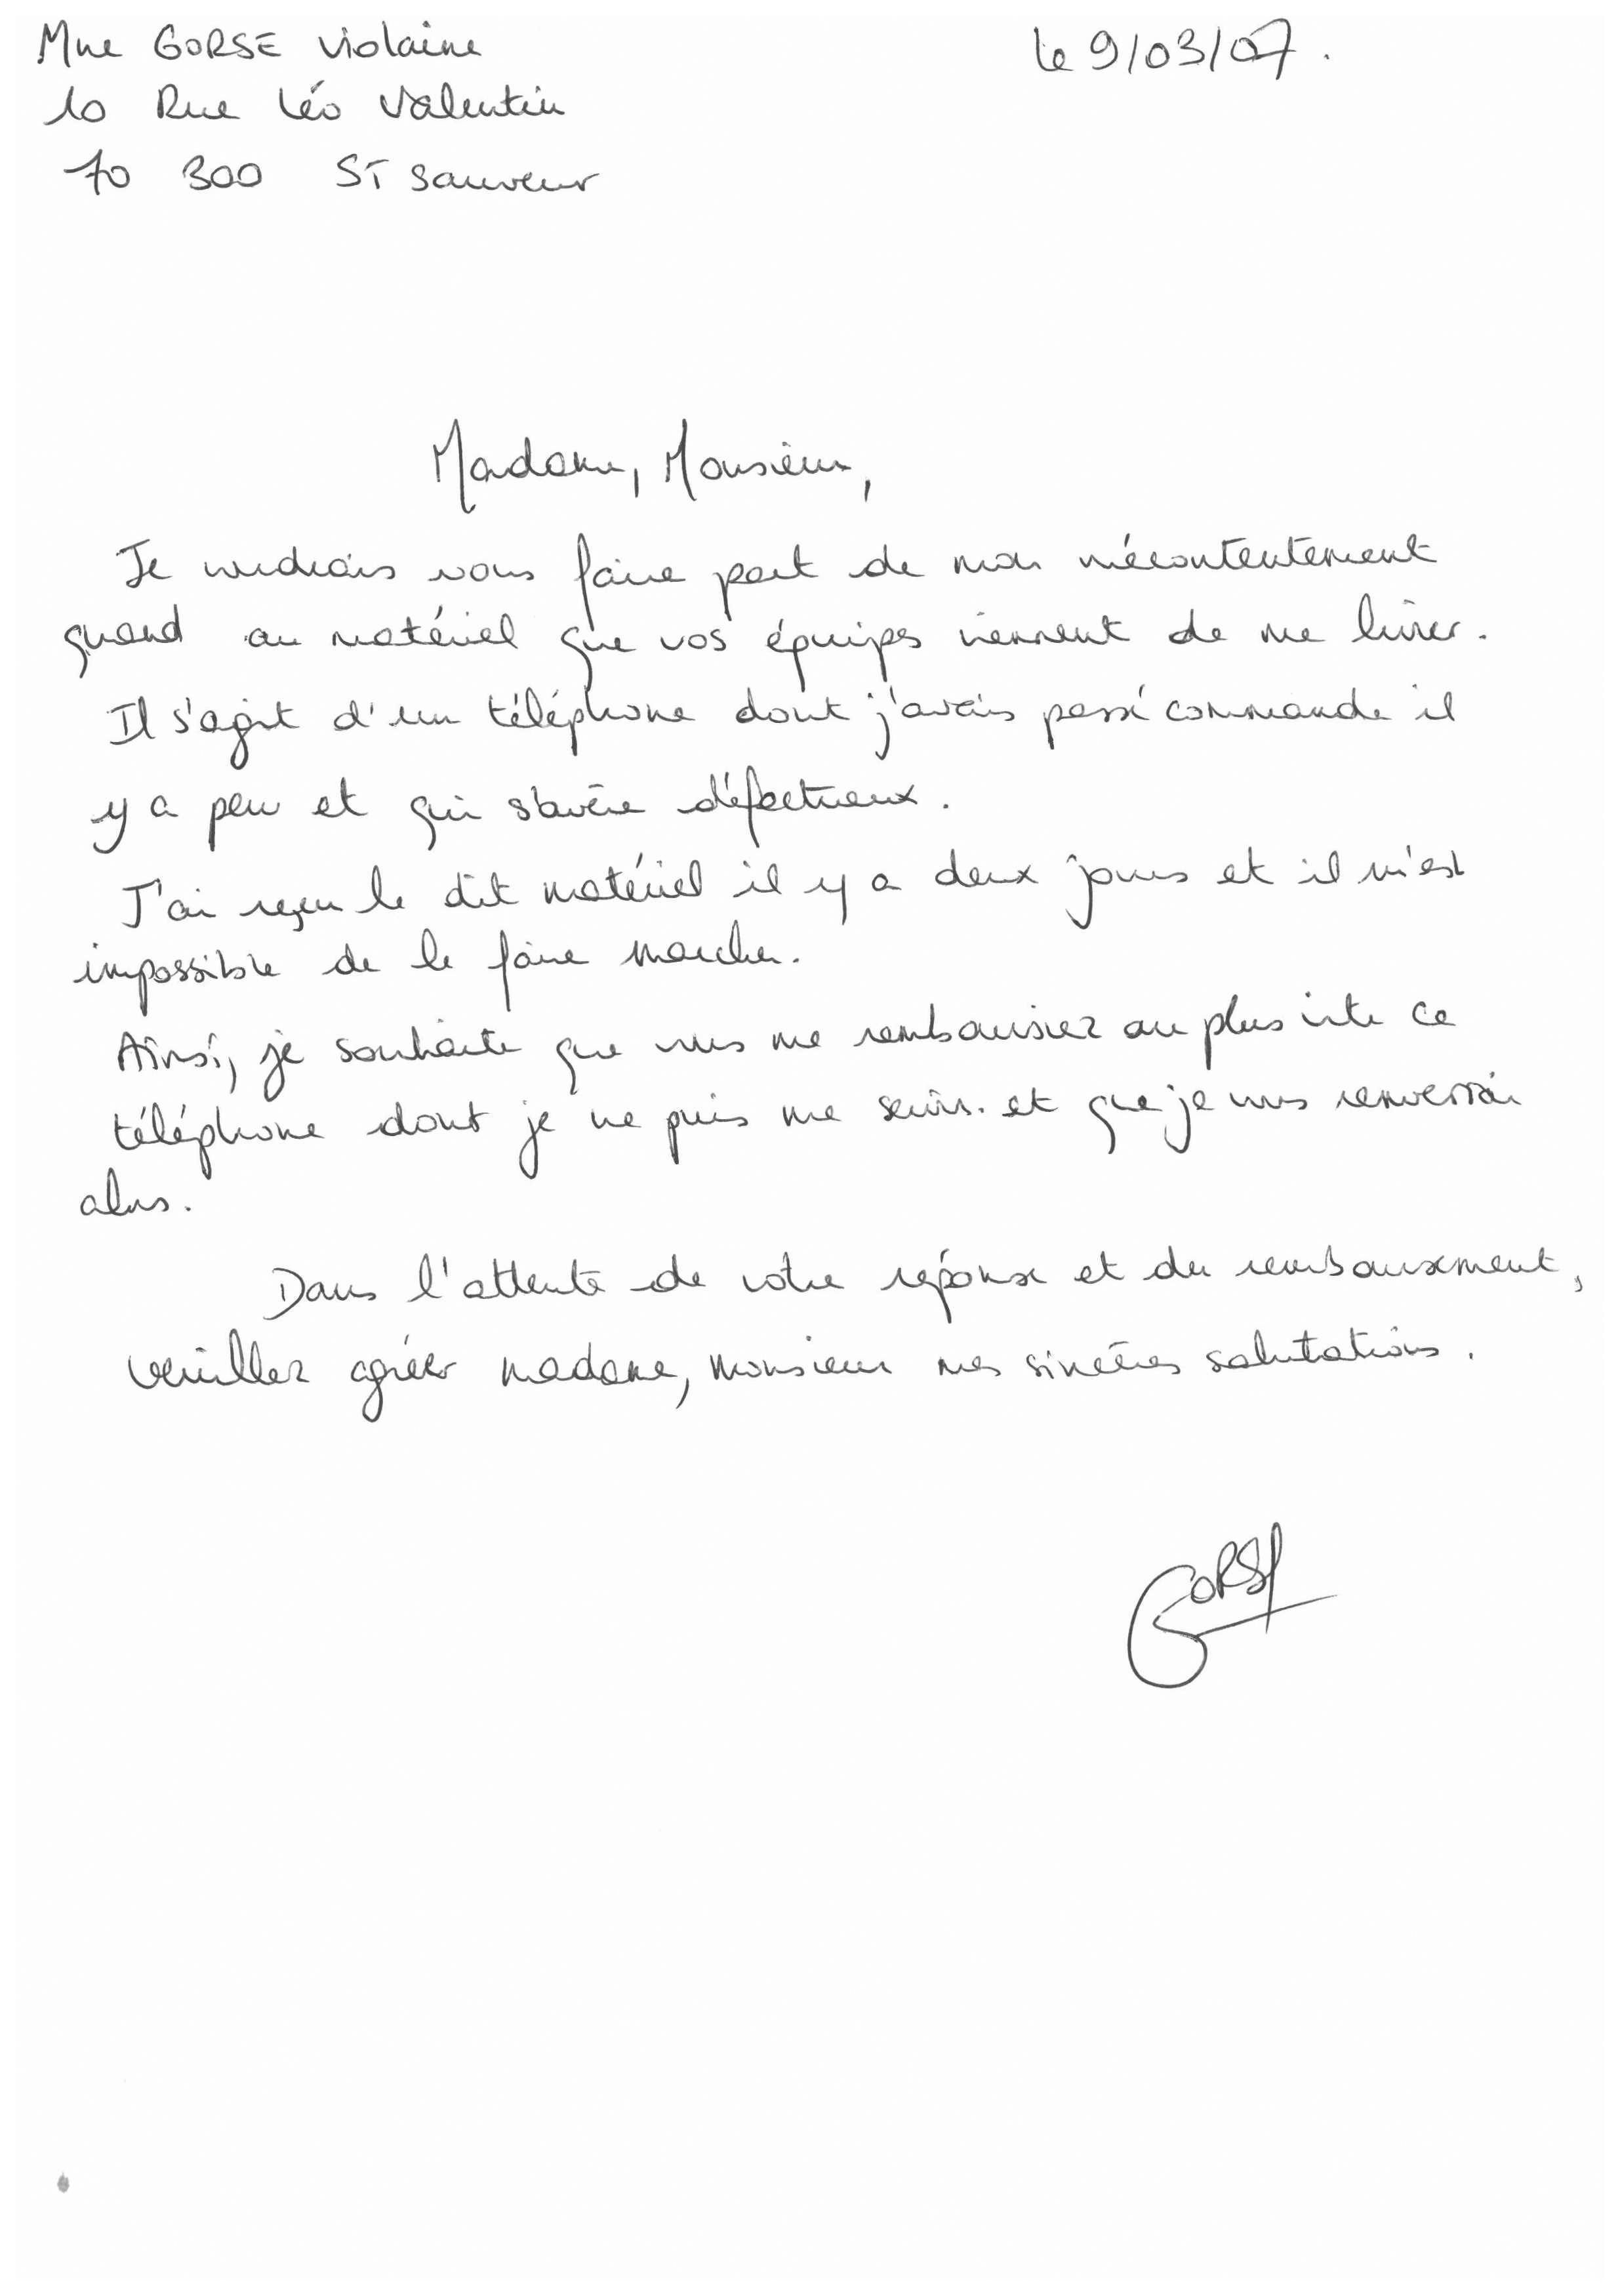 Mme GORSE Violaine
le 9/03/07.
10 Rue Léo Valentin
70 300 ST Sauveur
Madame, Monsieur,
Je voudrais vous faire part de mon mécontentement
quand au matériel que vos équipes viennent de me livrer.
Il s'agit d'un téléphone dont j'avais passé commande il
y a peu et qui s'avère défectueux.
J'ai reçu le dit matériel il y a deux jours et il m'est
impossible de le faire marcher.
Ainsi, je souhaite que vous me remboursiez au plus vite ce
téléphone dont je ne puis me servir. et que je vous renverrai
alors.
Dans l'attente de votre réponse et du remboursement,
veuillez agréer madame, monsieur mes sincères salutations.
GORSE